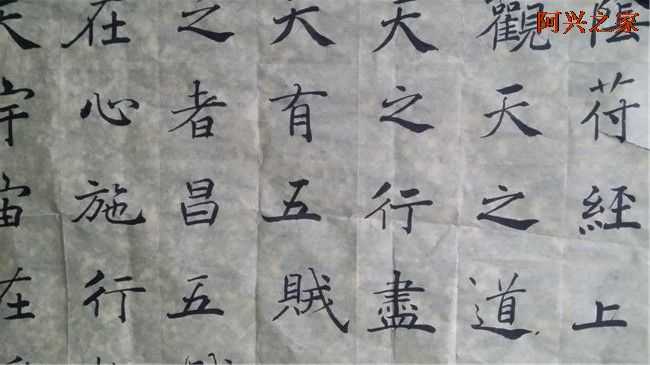 陰苻經上
觀天之道
天之行盡
天有五賊
之者昌五
在心施行
天宇宙在
阿兴之家